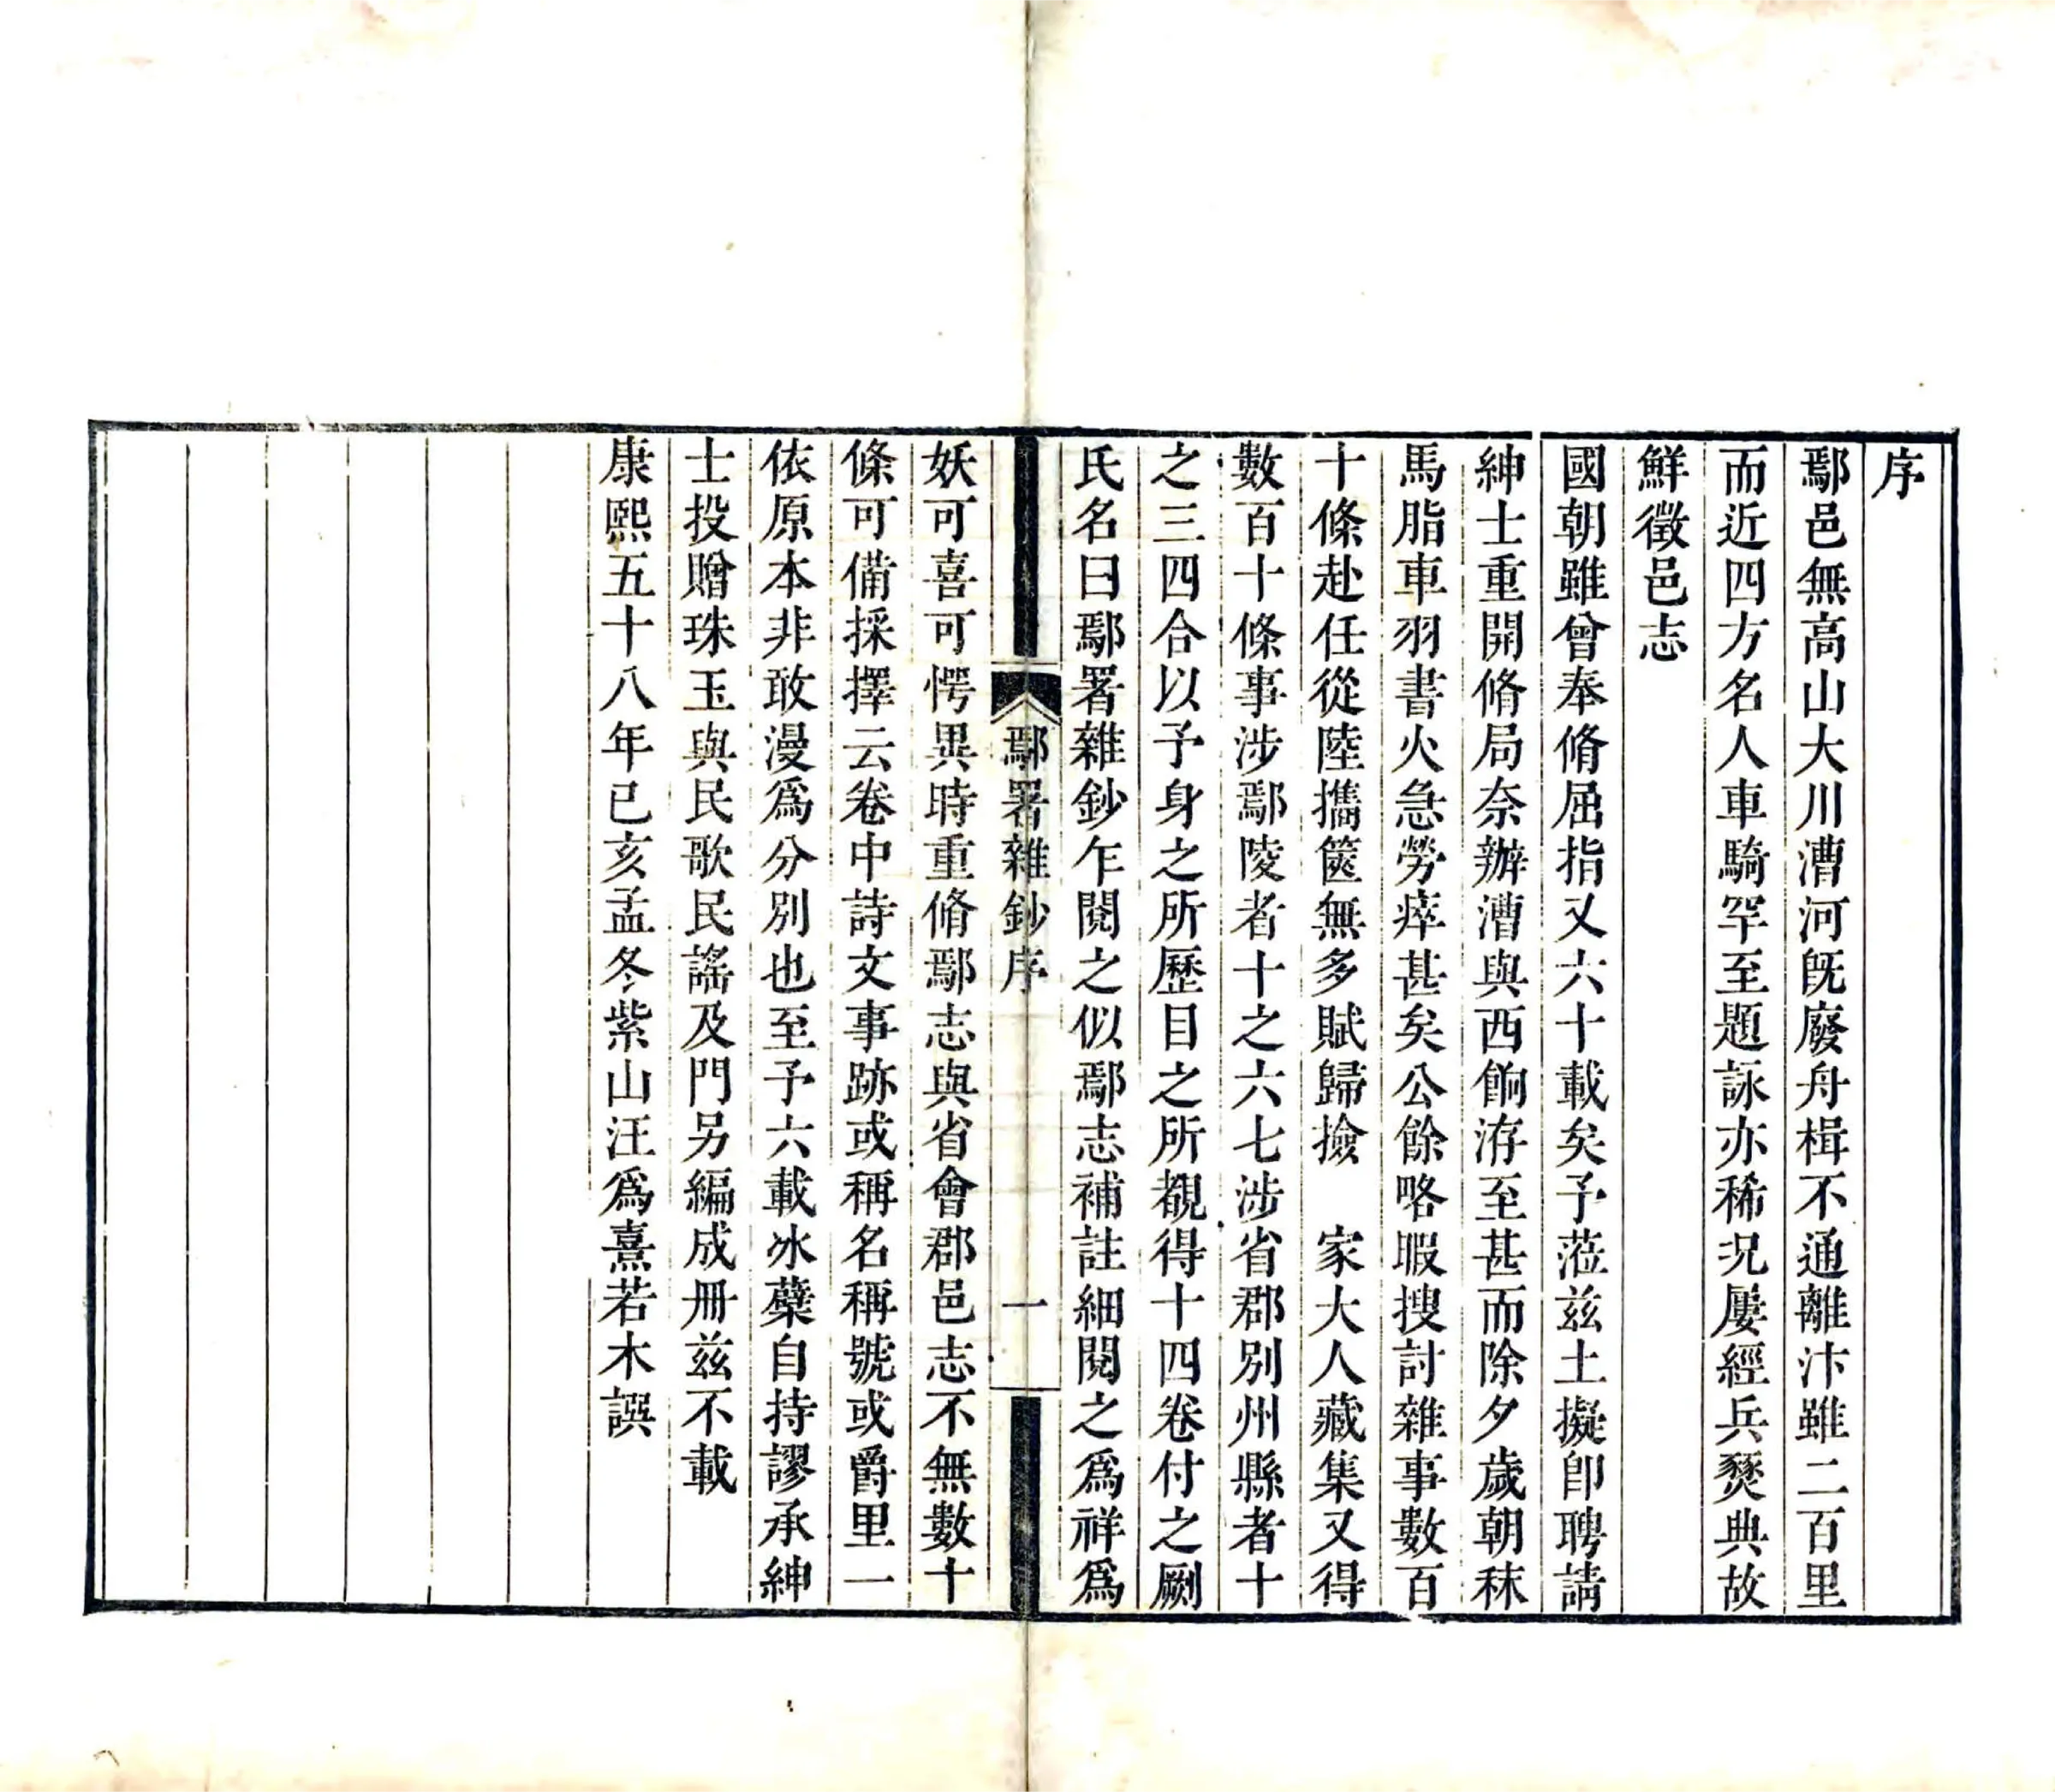 序
鄢邑無高山大川漕河旣廢舟楫不通離汴雖二百里
而近四方名人車騎罕至題詠亦稀况屢經兵燹典故
鮮徵邑志
國朝雖曾奉脩屈指又六十載矣予蒞兹土擬卽聘請
紳士重開脩局奈辦漕與西餉洊至甚而除夕歲朝秣
馬脂車羽書火急勞瘁甚矣公餘畧暇搜討雜事數百
十條赴任從陸攜篋無多賦歸撿　家大人藏集又得
數百十條事涉鄢陵者十之六七涉省郡別州縣者十
之三四合以予身之所歷目之所覩得十四卷付之劂
氏名曰鄢署雜鈔乍閱之似鄢志補註細閱之爲祥爲
鄢署雜鈔序　一
妖可喜可愕異時重脩鄢志與省會郡邑志不無數十
條可備採擇云卷中詩文事跡或稱名稱號或爵里一
依原本非敢漫爲分別也至予六載冰蘗自持謬承紳
士投贈珠玉與民歌民謠及門另編成冊兹不載
康熙五十八年已亥孟冬紫山汪爲熹若木譔